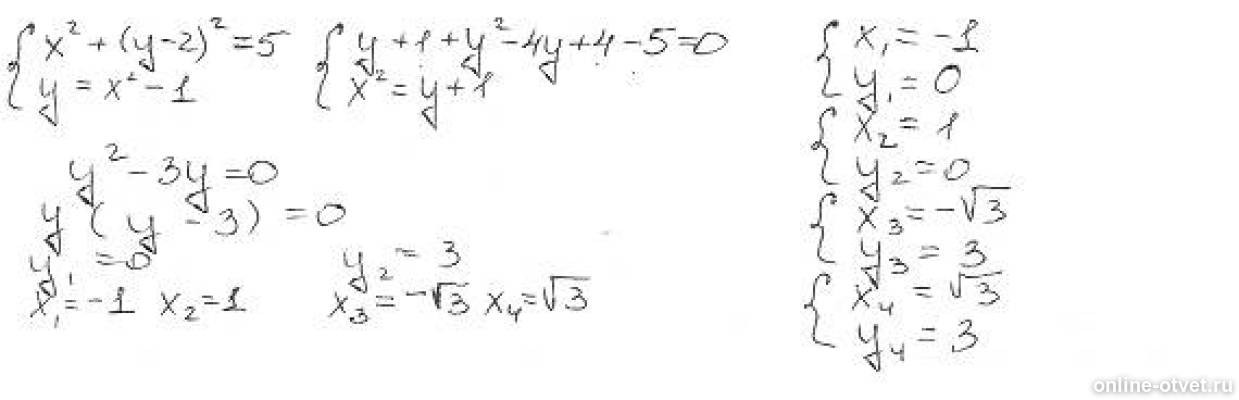 { x² + (y-2)² = 5
y = x² - 1
{ y + 1 + y² - 4y + 4 - 5 = 0
x² = y + 1
y² - 3y = 0
y ( y - 3) = 0
y₁ = 0 y₂ = 3
x₁ = -1 x₂ = 1 x₃ = -√3 x₄ = √3
{ x₁ = -1
y₁ = 0
{ x₂ = 1
y₂ = 0
{ x₃ = -√3
y₃ = 3
{ x₄ = √3
y₄ = 3
online-otvet.ru